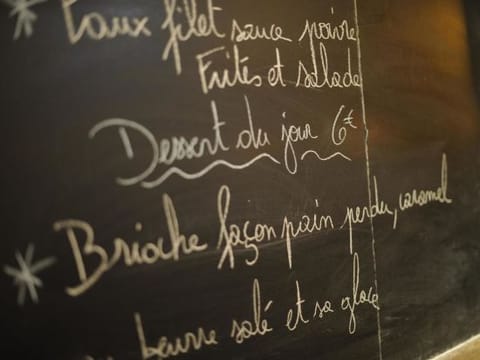 * Faux filet sauce poivre
Frites et salade
Dessert du jour 6€
* Brioche façon pain perdu, caramel
au beurre salé et sa glace